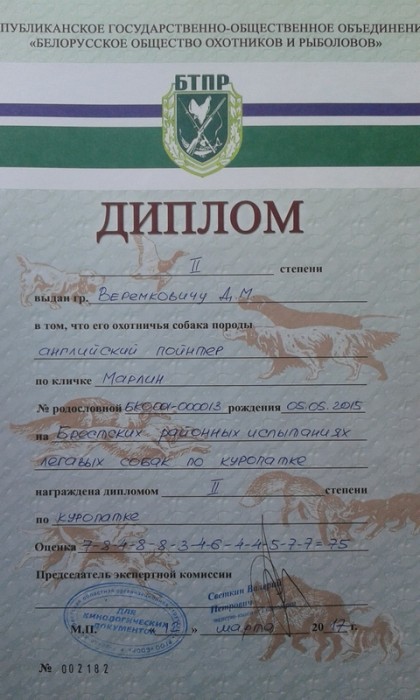 ПУБЛИКАНСКОЕ ГОСУДАРСТВЕННО-ОБЩЕСТВЕННОЕ ОБЪЕДИНЕНИ
«БЕЛОРУССКОЕ ОБЩЕСТВО ОХОТНИКОВ И РЫБОЛОВОВ»
БТПР
ДИПЛОМ
II степени
выдан гр. Веремковичу Д.М.
в том, что его охотничья собака породы
английский пойнтер
по кличке Марлин
№ родословной БКО001-000013 рождения 05.05.2015
на Брестских районных испытаниях
легавых собак по куропатке
награждена дипломом II степени
по куропатке
Оценка 7-8-4-8-8-3-4-6-4-4-5-7-7=75
Председатель экспертной комиссии
Светкин Валерий
Петрович
ДЛЯ
КИНОЛОГИЧЕСКИХ
ДОКУМЕНТОВ
М.П. марта 2017 г.
№ 002182